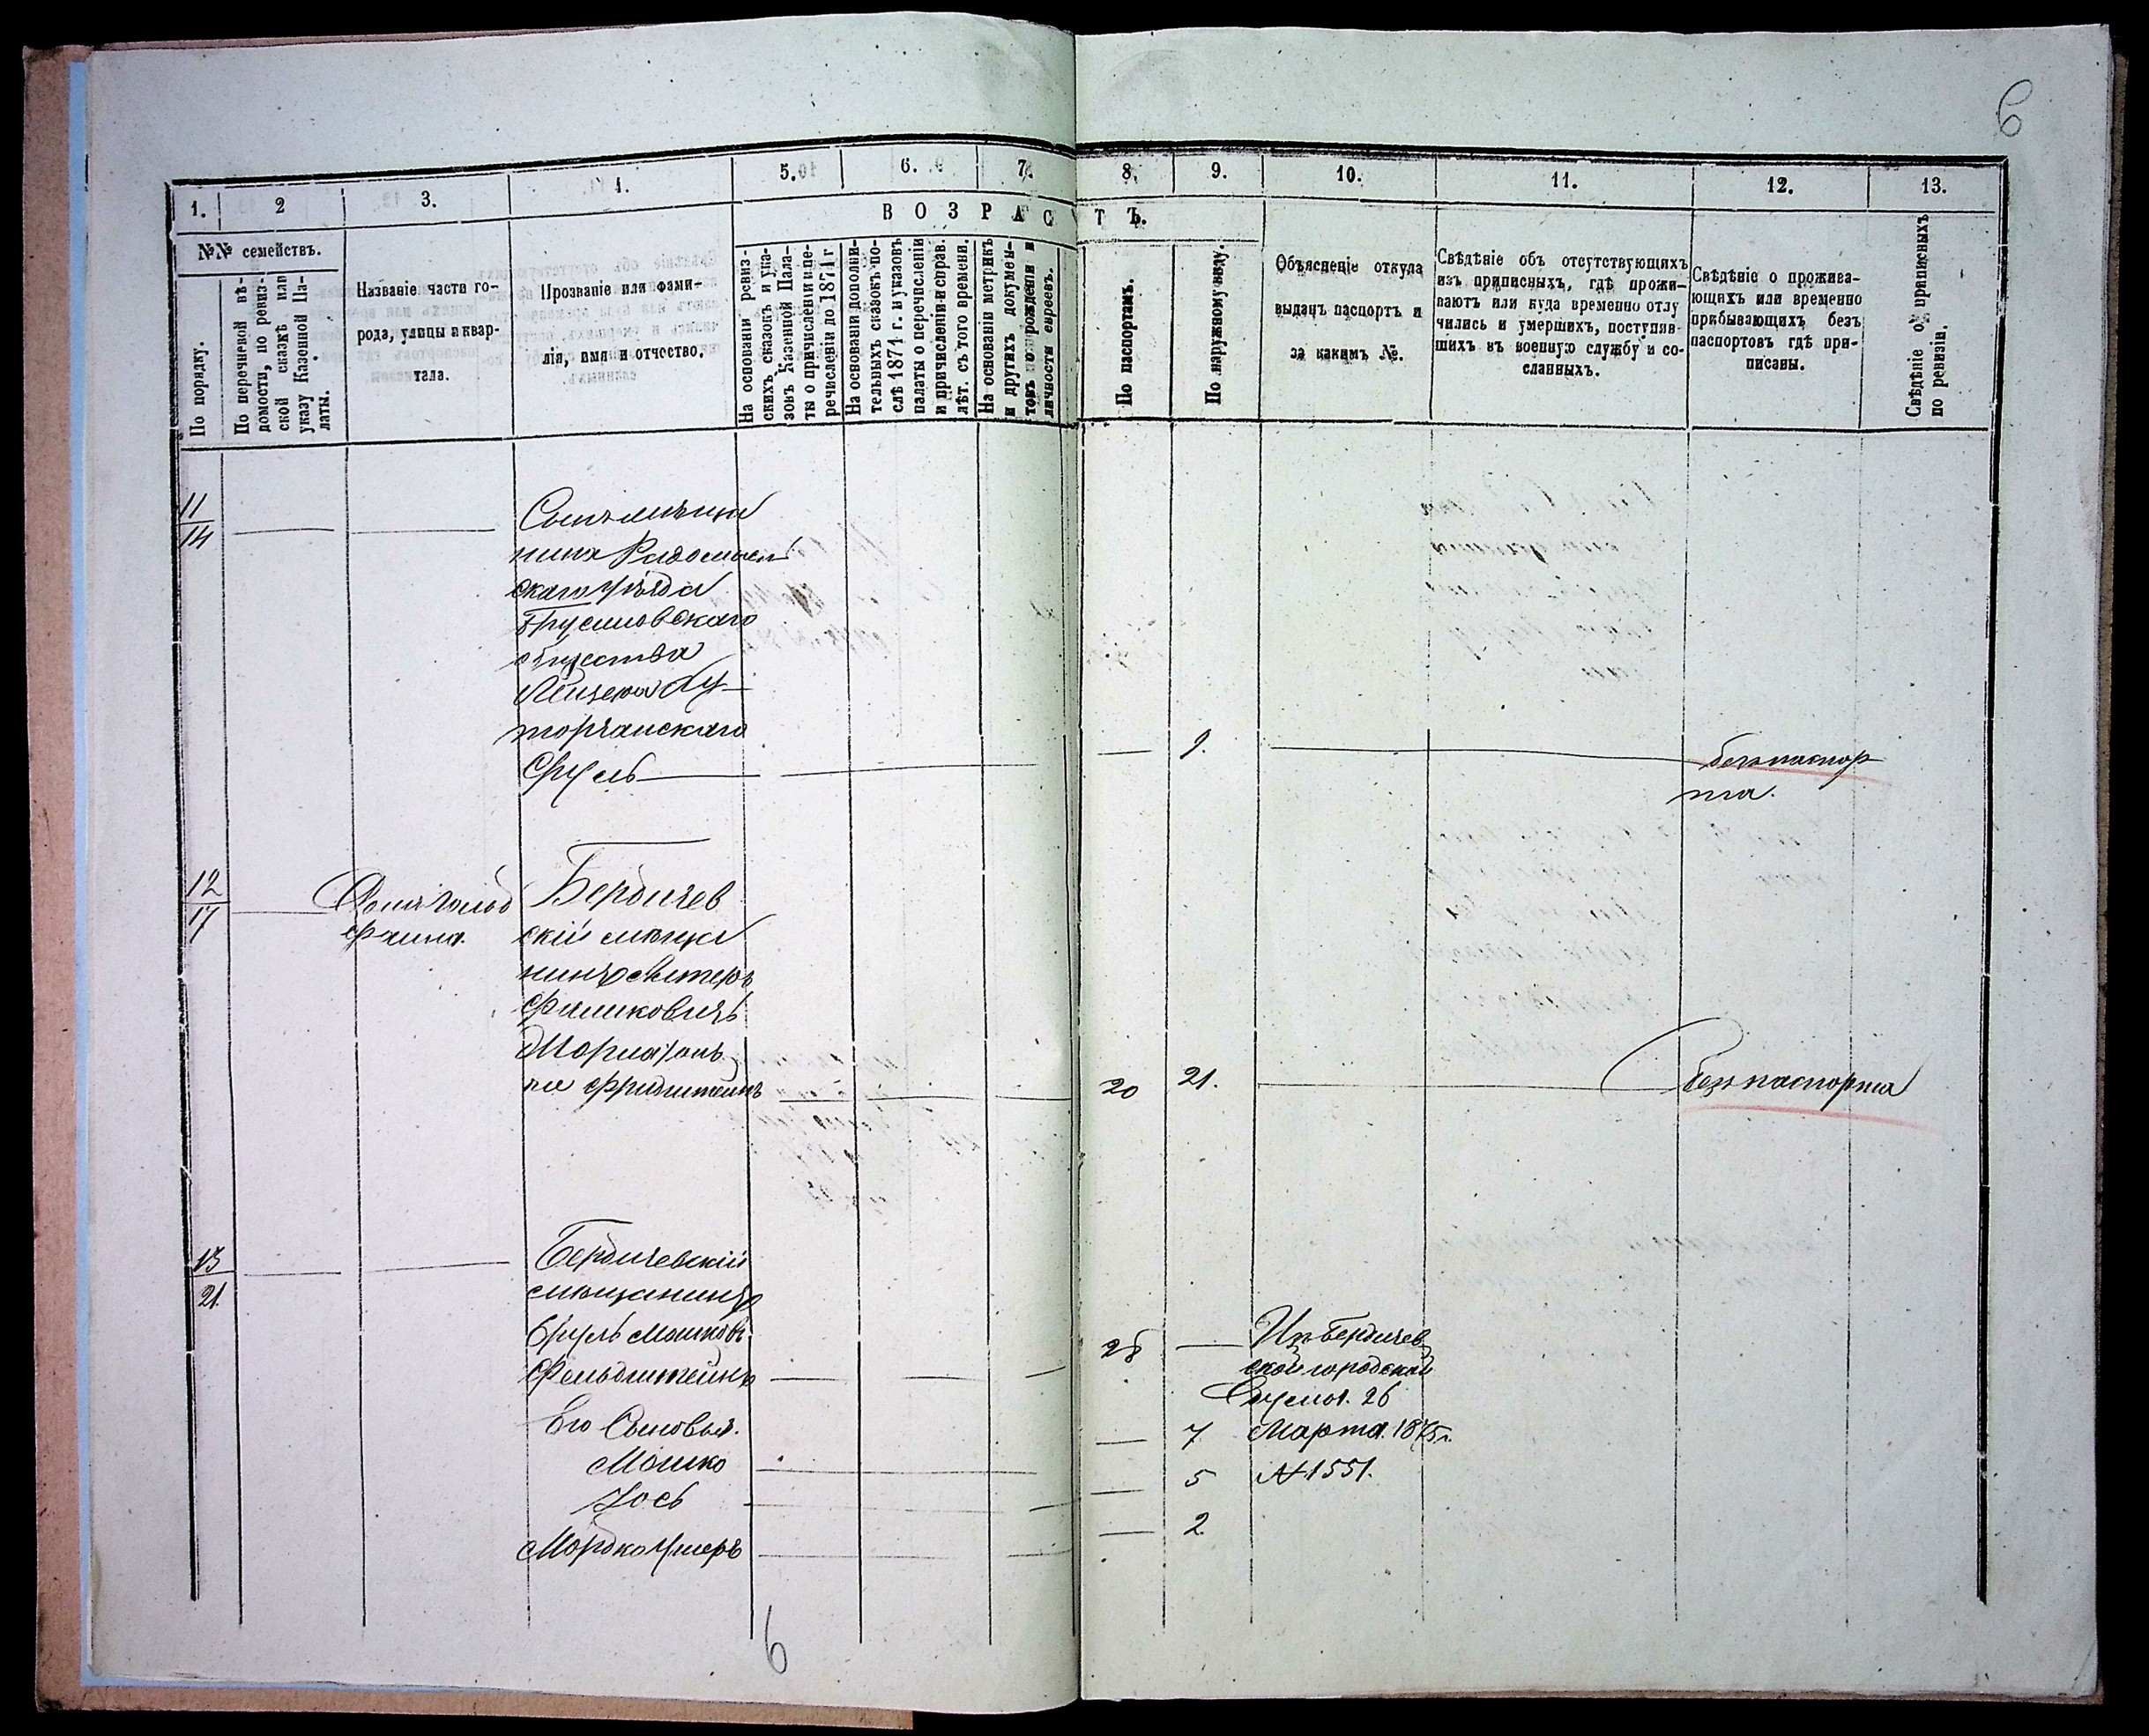 6
1.
2
3.
4.
5.
6.
7.
8.
9.
10.
11.
12.
13.
№№ семействъ.
ВОЗРАСТЪ.
По порядку.
По перечневой вѣ-
домости, по ревиз-
ской сказкѣ или
указу Казенной Па-
латы.
Названіе части го-
рода, улицы и квар-
тала.
Прозваніе или фами-
лія, имя и отчество.
На основаніи ревиз-
скихъ сказокъ и ука-
зовъ Казенной Пала-
ты о причисленіи и пе-
речисленіи до 1874 г
На основаніи дополни-
тельныхъ сказокъ по-
слѣ 1874 г. и указовъ
палаты о перечисленіи
и причисленіи и справ.
лѣт. съ того времени.
На основаніи метрикъ
и другихъ докумен-
товъ о рожденіи и
личности евреевъ.
По паспортамъ.
По наружному виду.
Объясненіе откуда
выданъ паспортъ и
за какимъ №.
Свѣдѣніе объ отсутствующихъ
изъ приписныхъ, гдѣ прожи-
ваютъ или куда временно отлу
чились и умершихъ, поступив-
шихъ въ военную службу и со-
сланныхъ.
Свѣдѣніе о прожива-
ющихъ или временно
пребывающихъ безъ
паспортовъ гдѣ при-
писаны.
Свѣдѣніе о приписныхъ
по ревизіи.
11
14
Сынъ мѣща
нина Радомысль
скаго уѣзда
Брусиловскаго
общества
Лейзера Ху
торянскаго
Сруль
9.
безъ паспор
та.
12
17
Домъ Гольд
фаина.
Бердичев
скій мѣща
нинъ
Фроимовичъ
Фридштейнъ
20
21.
безъ паспорта
13
21.
Бердичевскій
мѣщанинъ
Сруль Мошков.
Фельдштейнъ
28
Изъ Бердичев
ской городской
Думы. 26
Марта. 1875г.
№ 1551.
Его Сыновья.
Мошко
7
Іось
5
Мордко Ушеръ
2
6